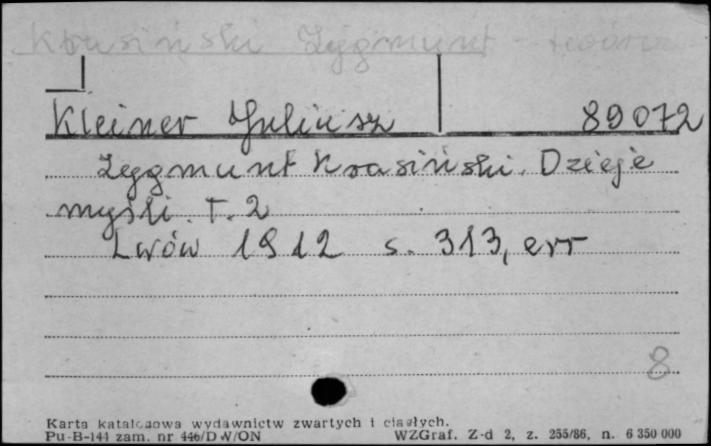 Krasiński Zygmunt -
Kleiner Juliusz 89072
Zygmunt Krasiński. Dzieje
myśli. T. 2
Lwów 1912 s. 313, err
8
Karta katalogowa wydawnictw zwartych i ciągłych.
Pu-B-144 zam. nr 446/DW/ON WZGraf. Z-d 2, z. 255/86, n. 6 350 000